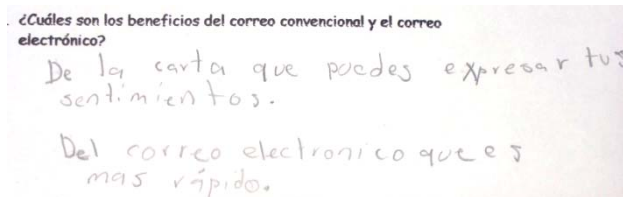 . ¿Cuáles son los beneficios del correo convencional y el correo
electrónico?
De la carta que puedes expresar tus
sentimientos.
Del correo electronico que es
mas rápido.